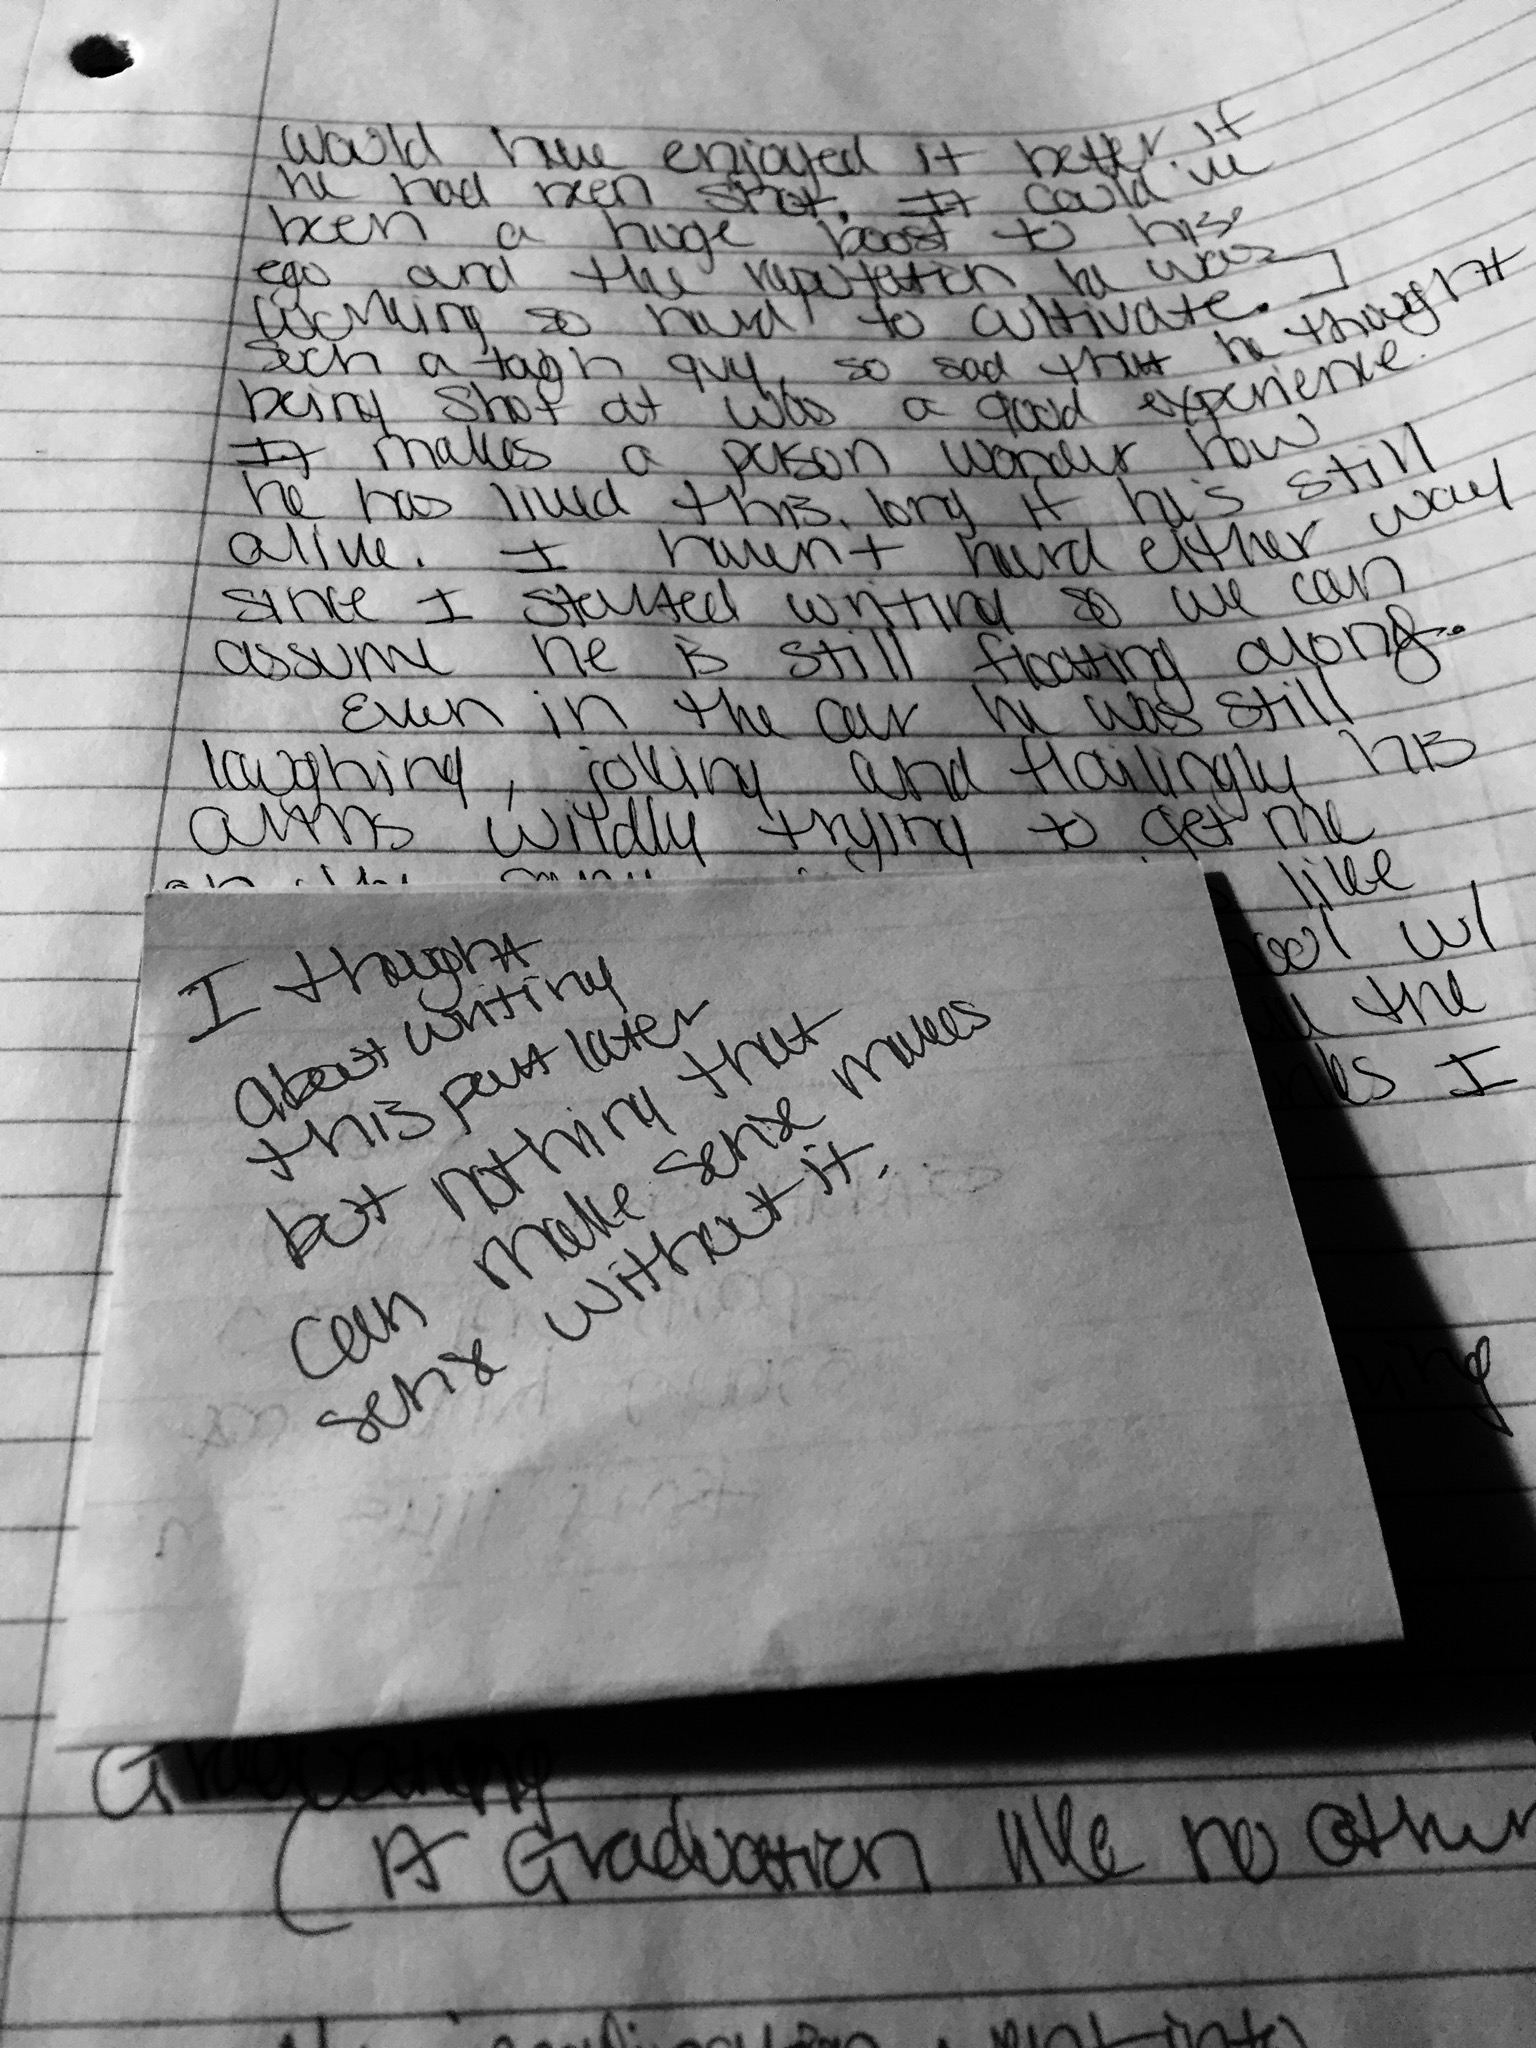 would have enjoyed it better if
he had been shot. It could've
been a huge boost to his
ego and the reputation he was
working so hard to cultivate.]
Such a tough guy, so sad that he thought
being shot at was a good experience.
It makes a person wonder how
he has lived this long if he's still
alive. I havent heard either way
since I started writing so we can
assume he is still floating along.
Even in the car he was still
laughing, joking and flailingly his
arms wildly trying to get me
like
w/
the
I
I thought
about writing
this part later
but nothing that
can make sense makes
sense without it.
Graduating
(A Graduation like no other